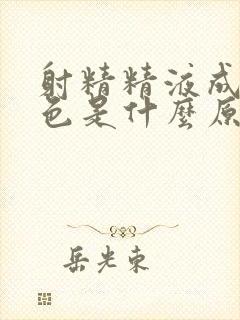 射精精液成
色是什麼原
岳光東